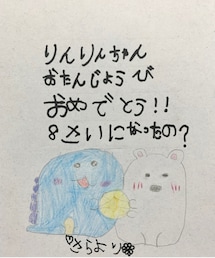 りんりんちゃん
おたんじょうび
おめでとう!!
8さいになったの?
さらより